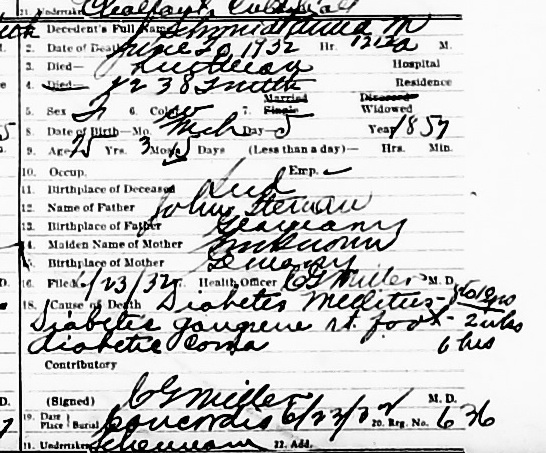 21. Undertaker
1. Decedent's Full Name Schmidt Anna M
2. Date of Death June 20 1932 Hr. 1212a M.
3. Died— Lutheran Hospital
4. Died— 1238 Smith Residence
Married Divorced
5. Sex F 6. Color w 7. Single Widowed
8. Date of Birth—Mo. Mch Day—5 Year 1857
9. Age 75 Yrs. 3 Mos. 15 Days (Less than a day)— Hrs. Min.
10. Occup. Emp.
11. Birthplace of Deceased Ind
12. Name of Father John
13. Birthplace of Father Germany
14. Maiden Name of Mother Unknown
15. Birthplace of Mother Germany
16. Filed 6/23/32 Health Officer CG Miller M. D.
18. Cause of Death Diabetes Mellitus- yrs
Diabetes gangrene rt. foot - 2 wks
diabetic coma 6 hrs
Contributory
(Signed) CG Miller M. D.
19. Date Place Burial Concordia 6/23/32 20. Reg. No. 636
21. Undertaker 22. Add.